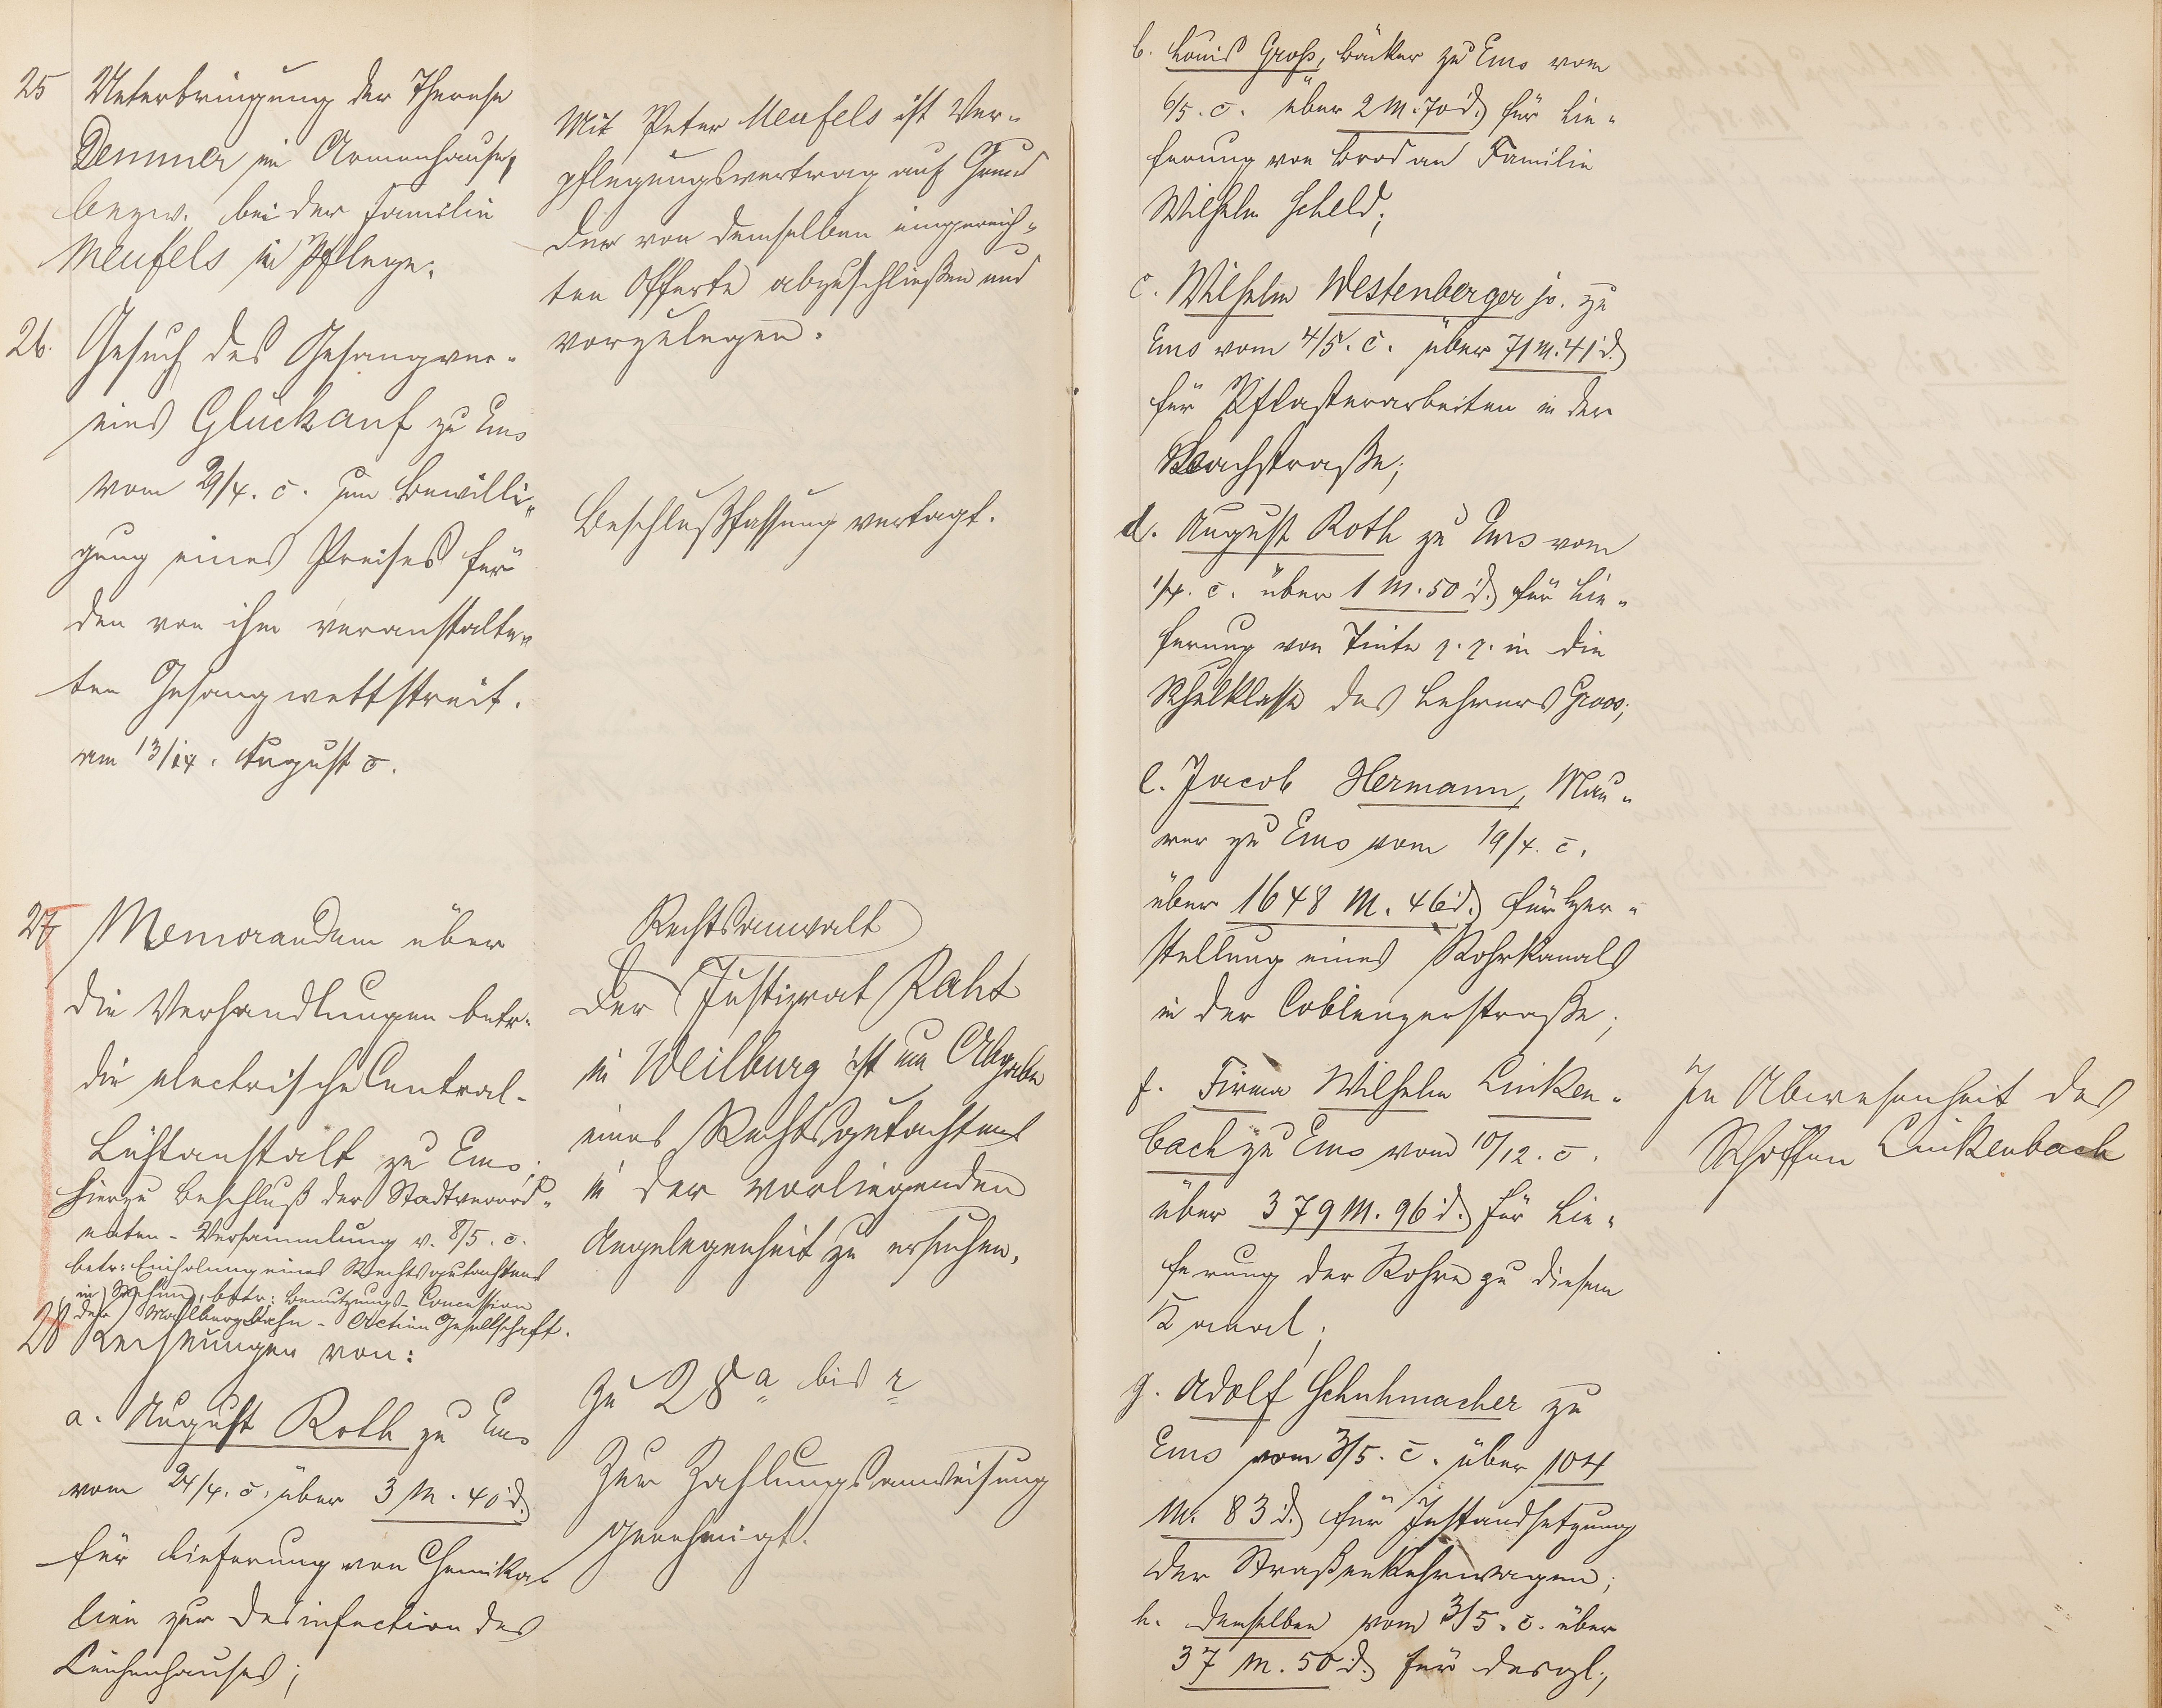 25 Unterbringung der Therese
Demmer im Armenhause,
bezw. bei der Familie
Meufels in Pflege.
Mit Peter Meufels ist Ver-
pflegungsvertrag auf Grund
der von demselben eingereich-
ten Offerte abzuschließen und
vorzulegen.
26. Gesuch des Gesangver-
eins Glückauf zu Ems
vom 9/4. c. um Bewilli-
gung eines Preises für
den von ihm veranstalte-
ten Gesangwettstreit.
am 13/14. August c.
Beschlußfassung vertagt.
27 Memorandum über
die Verhandlungen betr.
die electrische Central-
Lichtanstalt zu Ems;
hierzu Beschluß der Stadtverord-
neten-Versammlung v. 8/5. c.
betr: Einholung eines Rechtsgutachtens
in betr: Benutzungs-Concession
der Malbergbahn-Actien Gesellschaft.
Rechtsanwalt
Der Justizrat Raht
in Weilburg ist um Abgabe
eines Rechtsgutachtens
in der vorliegenden
Angelegenheit zu ersuchen.
28 Rechnungen von:
a. August Roth zu Ems
vom 24/4. c. über 3 M. 40 d.
für Lieferung von Chemika-
lien zur Desinfection des
Leichenhauses;
Zu 28 a bis r
Zur Zahlungsanweisung
genehmigt.
b. Louis Groß, Bäcker zu Ems vom
6/5. c. über 2 M. 70 d. für Lie-
ferung von Brod an Familie
Wilhelm Scheld;
c. Wilhelm Westenberger jr. zu
Ems vom 4/5. c. über 71 M. 41 d.
für Pflasterarbeiten in der
Bachstraße;
d. August Roth zu Ems vom
1/4. c. über 1 M. 50 d. für Lie-
ferung von Tinte p. p. in die
Schulklasse des Lehrers Groos;
e. Jacob Hermann, Mau-
rer zu Ems vom 19/4. c.
über 1648 M. 46 d. für Her-
stellung eines Rohrkanals
in der Coblenzerstraße;
f. Firma Wilhelm Linken-
bach zu Ems vom 10/12. c.
über 379 M. 96 d. für Lie-
ferung der Rohre zu diesem
Kanal;
In Abwesenheit des
Schöffen Linkenbach
g. Adolf Schuhmacher zu
Ems vom 3/5. c. über 104
M. 83 d. für Instandsetzung
der Straßenkehrwagen;
h. denselben vom 3/5. c. über
37 M. 50 d. für desgl.;